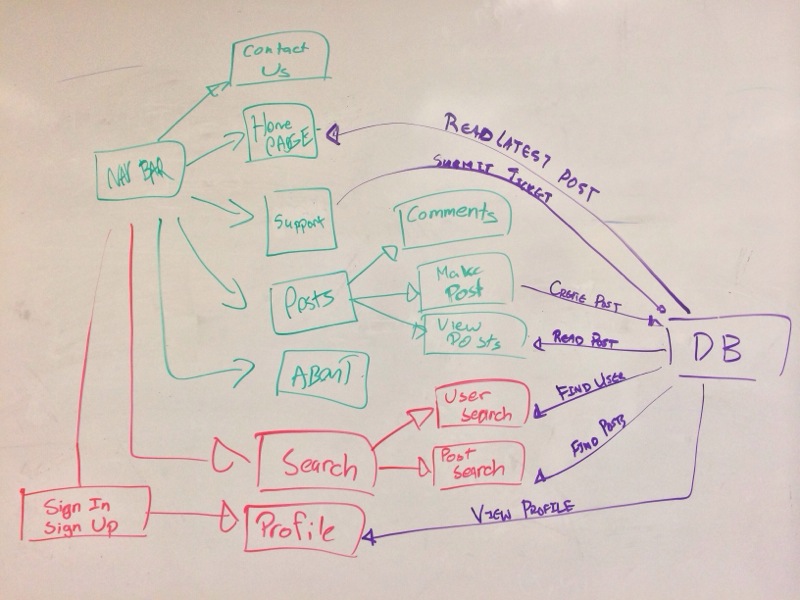 Contact
Us
Home
PAGE
READ LATEST POST
SUBMIT TICKET
NAV BAR
Support
Comments
Posts
Make
Post
CREATE POST
View
Posts
READ POST
DB
ABOUT
FIND USER
User
Search
FIND POSTS
Search
Post
Search
Sign In
Sign Up
Profile
VIEW PROFILE